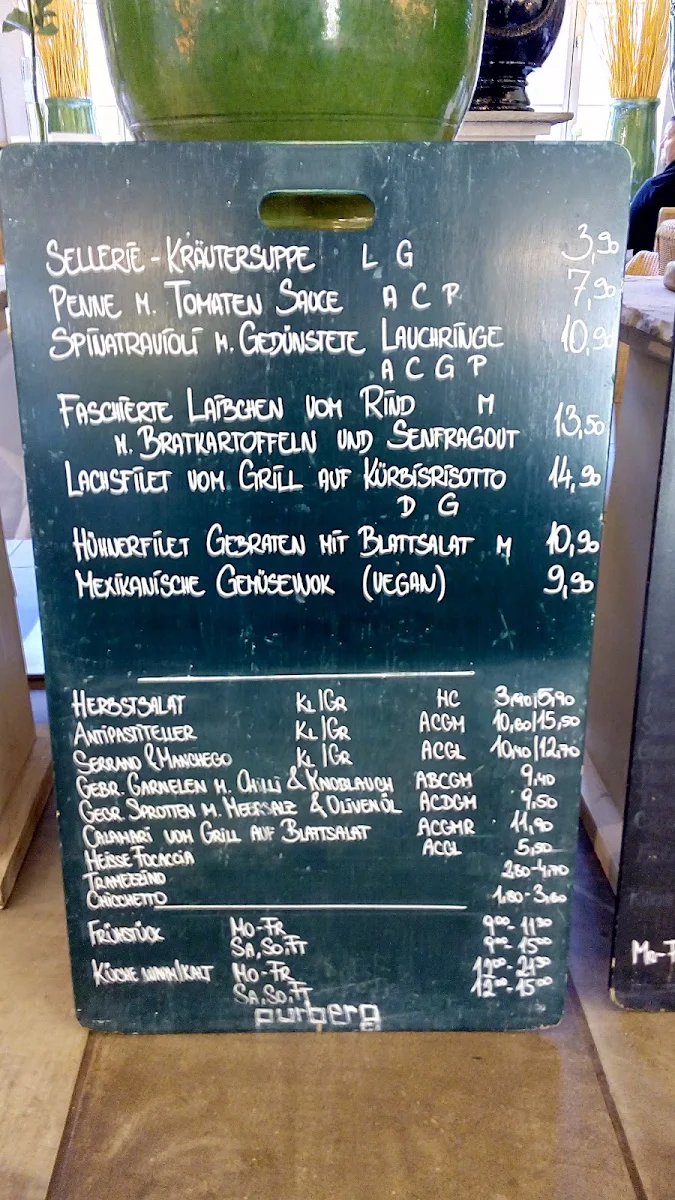 SELLERIE - KRÄUTERSUPPE L G 3,90
PENNE M. TOMATEN SAUCE A C P 7,90
SPINATRAVIOLI M. GEDÜNSTETE LAUCHRINGE 10,90
A C G P
FASCHIERTE LAIBCHEN VOM RIND M
M. BRATKARTOFFELN UND SENFRAGOUT 13,50
LACHSFILET VOM GRILL AUF KÜRBISRISOTTO 14,90
D G
HÜHNERFILET GEBRATEN MIT BLATTSALAT M 10,90
MEXIKANISCHE GEMÜSEWOK (VEGAN) 9,90
HERBSTSALAT KL/GR HC 3,90/5,90
ANTIPASTITELLER KL/GR ACGM 10,80/15,50
SERRANO & MANCHEGO KL/GR ACGL 10,40/12,70
GEBR. GARNELEN M. CHILLI & KNOBLAUCH ABCGM 9,40
GEGR. SPROTTEN M. MEERSALZ & OLIVENÖL ACDGM 9,50
CALAMARI VOM GRILL AUF BLATTSALAT ACGMR 11,90
HEISSE FOCACCIA ACGL 5,50
TRAMEZZINO 2,80-4,70
CHICCHETTO 1,80-3,60
FRÜHSTÜCK MO-FR 9⁰⁰-11³⁰
SA,SO,FT 9⁰⁰-15⁰⁰
KÜCHE WARM/KALT MO-FR 12⁰⁰-21³⁰
SA,SO,FT 12⁰⁰-15⁰⁰
purberg
MO-F